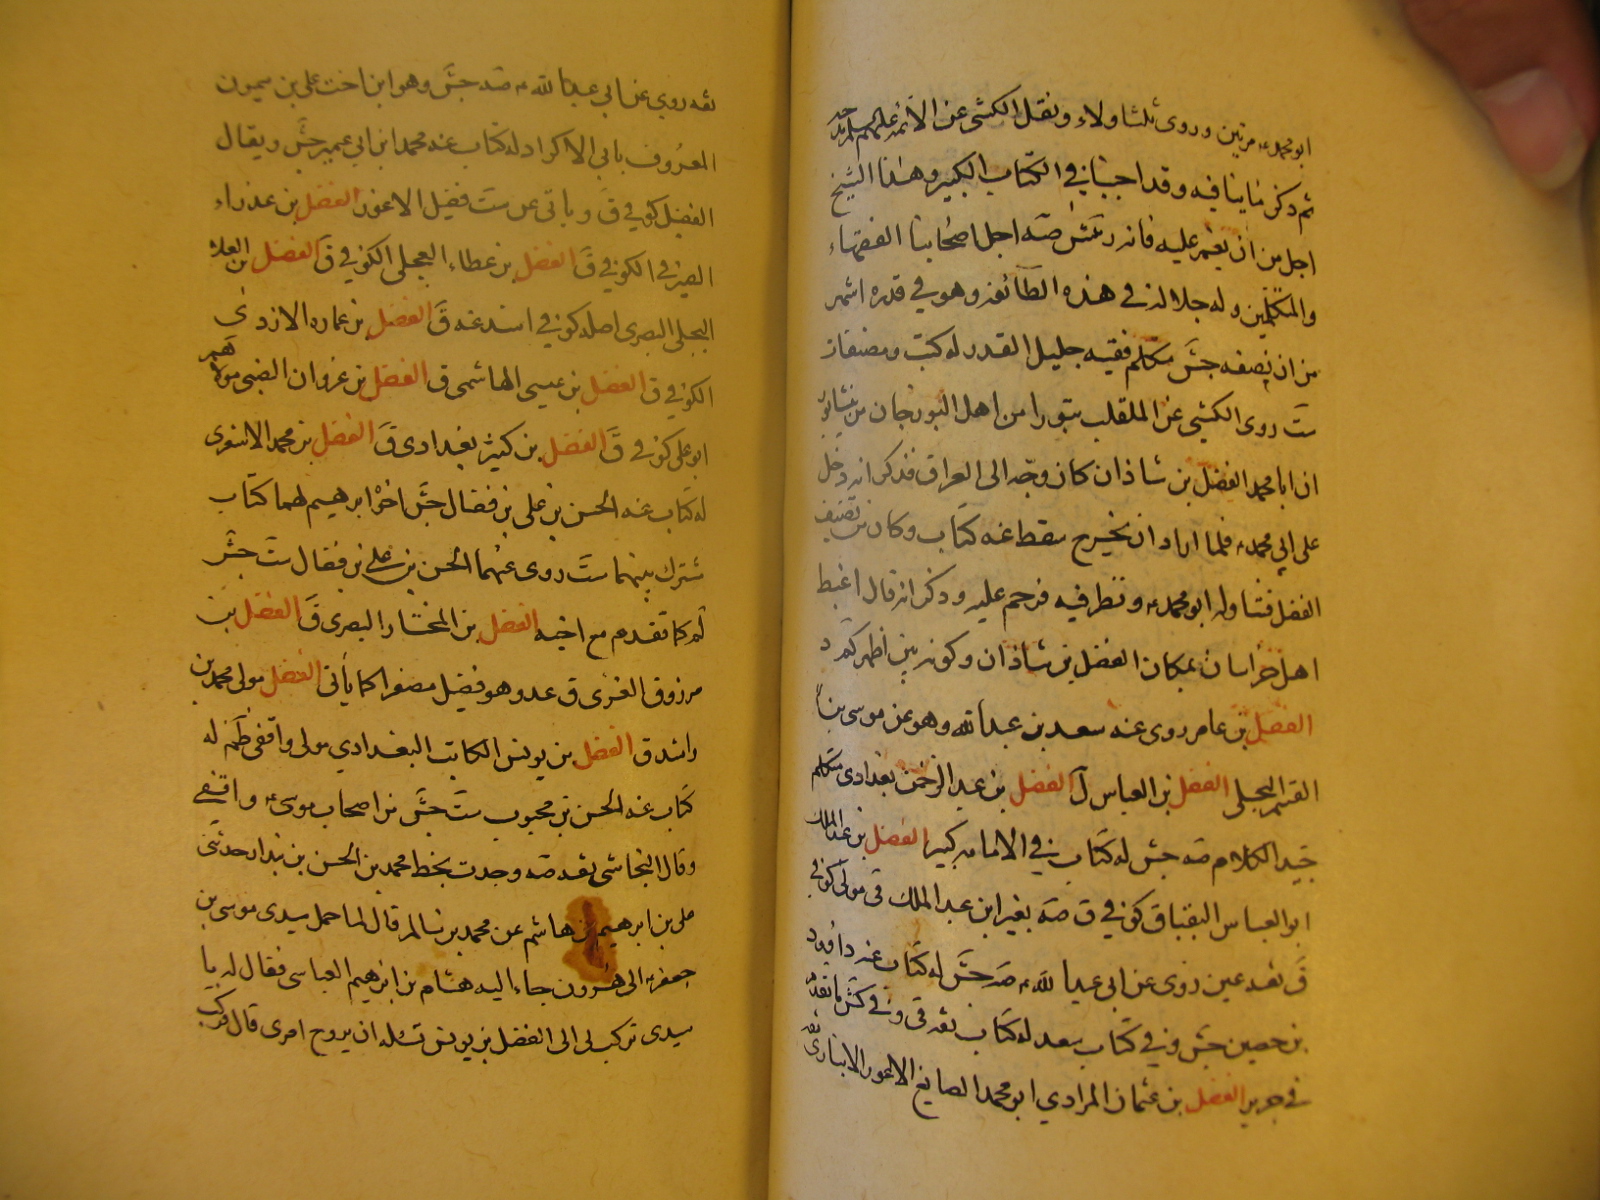 ابو محمد ع مرتين وروى ثلثا ولاء ونقل الكشى عن الائمة عليهم السلم مدحه
ثم ذكر ما ينافيه وقد اجبنا في الكتاب الكبير وهذا الشيخ
اجل من ان يغمز عليه فانه رئيس صه اجل اصحابنا الفقهاء
والمتكلمين وله جلالة في هذه الطائفة وهو في قدره اشهر
من ان نصفه جش متكلم فقيه جليل القدر له كتب ومصنفات
ست روى الكشي عن الملقب بتورا من اهل البورجان من نيشابور
ان ابا محمد الفضل بن شاذان كان وجه الى العراق فذكر انه دخل
على ابي محمد ع فلما اراد ان يخرج سقط عنه كتاب وكان من تصنيف
الفضل فتناوله ابو محمد ع ونظر فيه فترحم عليه وذكر انه قال اغبط
اهل خراسان بمكان الفضل بن شاذان وكونه بين اظهركم د
الفضل بن عامر روى عنه سعد بن عبد الله وهو عن موسى بن
القسم البجلى الفضل بن العباس ل الفضل بن عبد الرحمن بغدادى متكلم
جيد الكلام صه جش له كتاب في الامامة كبير الفضل بن عبد الملك
ابو العباس البقباق كوفي ق صه بغير ابن عبد الملك قى مولى كوفي
ق ثقة عين روى عن ابي عبد الله ع صه جش له كتاب عنه داوود
بن حصين جش وفي كتاب سعد له كتاب ثقة قى وفي كش ما تقدم
في حريز الفضل بن عثمان المرادي ابو محمد الصايغ الاعور الانبارى ثقة
ثقة روى عن ابي عبد الله ع صه جش وهو ابن اخت علي بن ميمون
المعروف بابي الاكراد له كتاب عنه محمد ابن ابي عمير جش ويقال
الفضيل كوفي ق وياتى عن ست فضيل الاعور الفضل بن عذراء
الصيرفى الكوفي ق الفضل بن عطاء العجلى الكوفي ق الفضل بن العلاء
البجلى البصرى اصله كوفي اسند عنه ق الفضل بن عماره الازدى
الكوفي ق الفضل بن عيسى الهاشمى ق الفضل بن غزوان الضبى مولاهم
ابو على كوفي ق الفضل بن كثير بغدادى ق الفضل بن محمد الاشعرى
له كتاب عنه الحسن بن على بن فضال جش اخو ابرهيم لهما كتاب
مشترك بينهما ست روى عنهما الحسن بن على بن فضال ست جش
لم كما تقدم مع اخيه الفضل بن المختار البصرى ق الفضل بن
مرزوق العنزى ق عدو هو فضيل مصغرا كما يأتى الفضل مولى محمد بن
راشد ق الفضل بن يونس الكاتب البغدادي مولى واقفى ظم له
كتاب عنه الحسن بن محبوب ست جش من اصحاب موسى ع واقفي
وقال النجاشى ثقة صه وجدت بخط محمد بن الحسن بن بندار حدثنى
على بن ابرهيم بن هاشم عن محمد بن سالم قال لما حمل سيدى موسى بن
جعفر ع الى هرون جاء اليه هشام بن ابرهيم العباسى فقال له يا
سيدى تركب لى الى الفضل بن يونس تسئله ان يروح امرى قال فركب